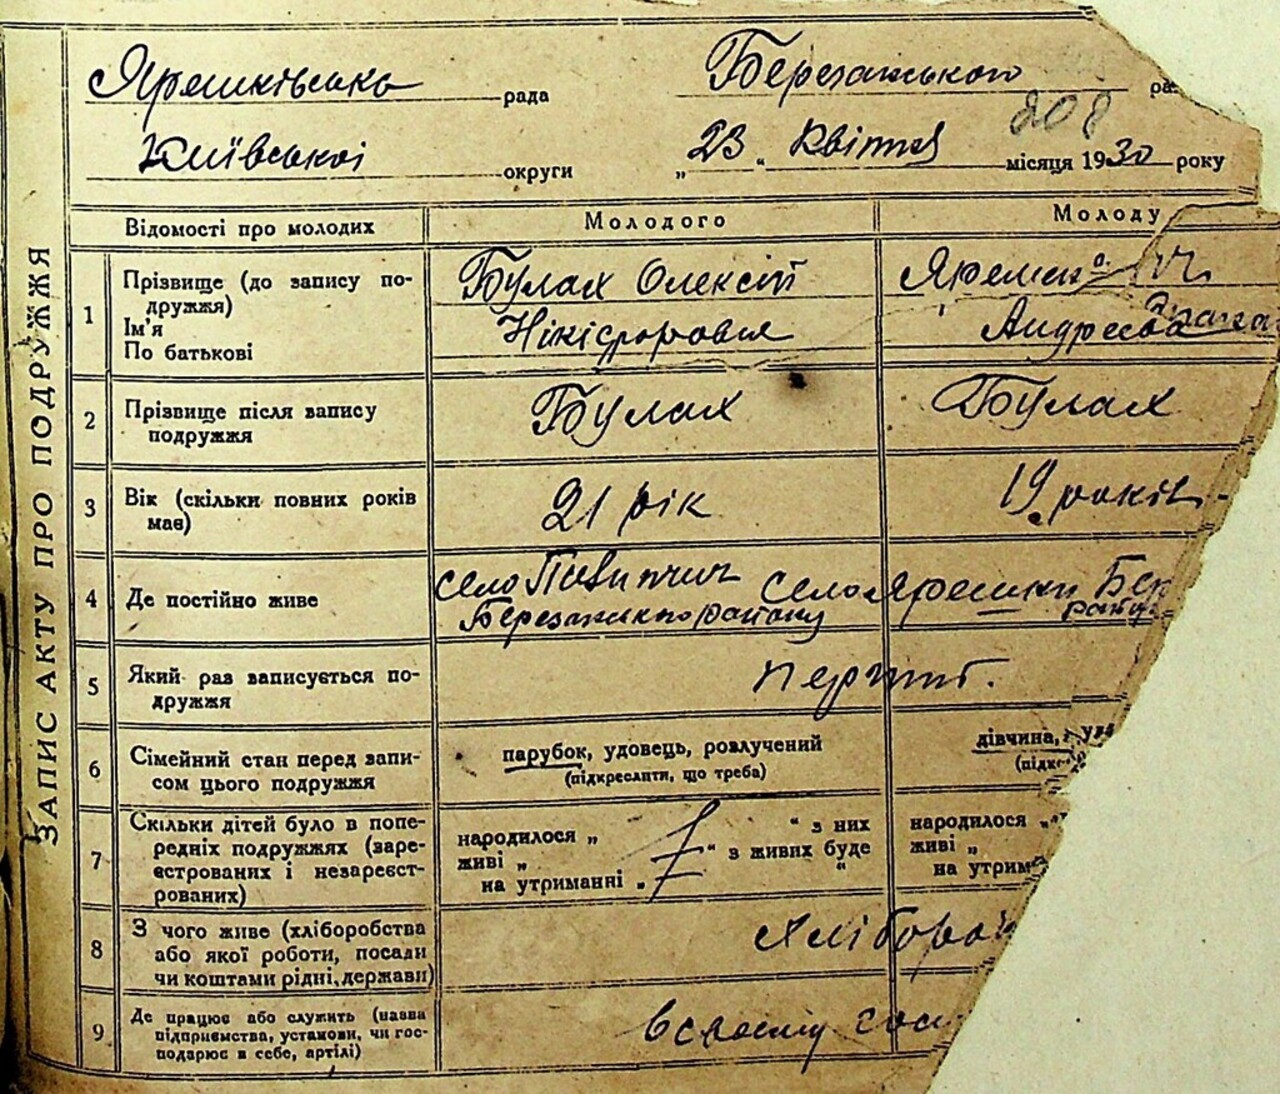 Ярешківська рада Березанського
208
Київської округи „23“ квітня місяця 1930 року
ЗАПИС АКТУ ПРО ПОДРУЖЖЯ
Відомості про молодих Молодого Молоду
1 Прізвище (до запису по-
дружжя)
Ім'я
По батькові
Булах Олексій
Нікіфорович
Андреєва
2 Прізвище після запису
подружжя
Булах Булах
3 Вік (скільки повних років
має)
21 рік 19 років
4 Де постійно живе
село село Ярешки Бер
Березанського району
5 Який раз записується по-
дружжя
перший.
6 Сімейний стан перед запи-
сом цього подружжя
парубок, удовець, розлучений дівчина, удо
(підкреслити, що треба) (підк
7 Скільки дітей було в попе-
редніх подружжях (заре-
єстрованих і незареєст-
рованих)
народилося „ “ з них народилося „
живі „ “ з живих буде живі „
на утриманні „ “ на утрим
8 З чого живе (хліборобства
або якої роботи, посади
чи коштами рідні, держави)
хлібороб
9 Де працює або служить (назва
підприємства, установи, чи гос-
подарює в себе, артілі)
в своєму гос